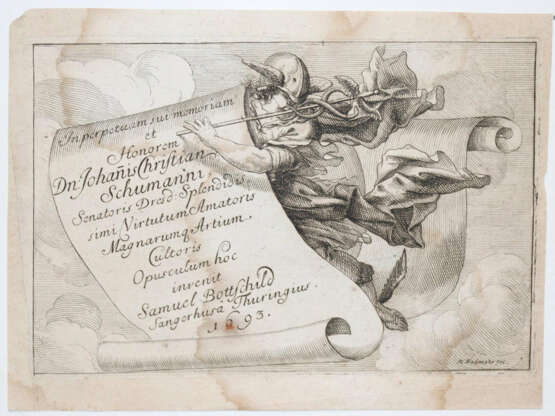 In perpetuam sui memoriam
et
Honorem
Dn. Johañis Christian
Schumanni
Senatoris Dresd: Splendidis
simi Virtutum Amatoris
Magnarumq Artium
Cultoris
Opusculum hoc
invenit
Samuel Bottschild
Sangerhusâ Thuringius.
1693.